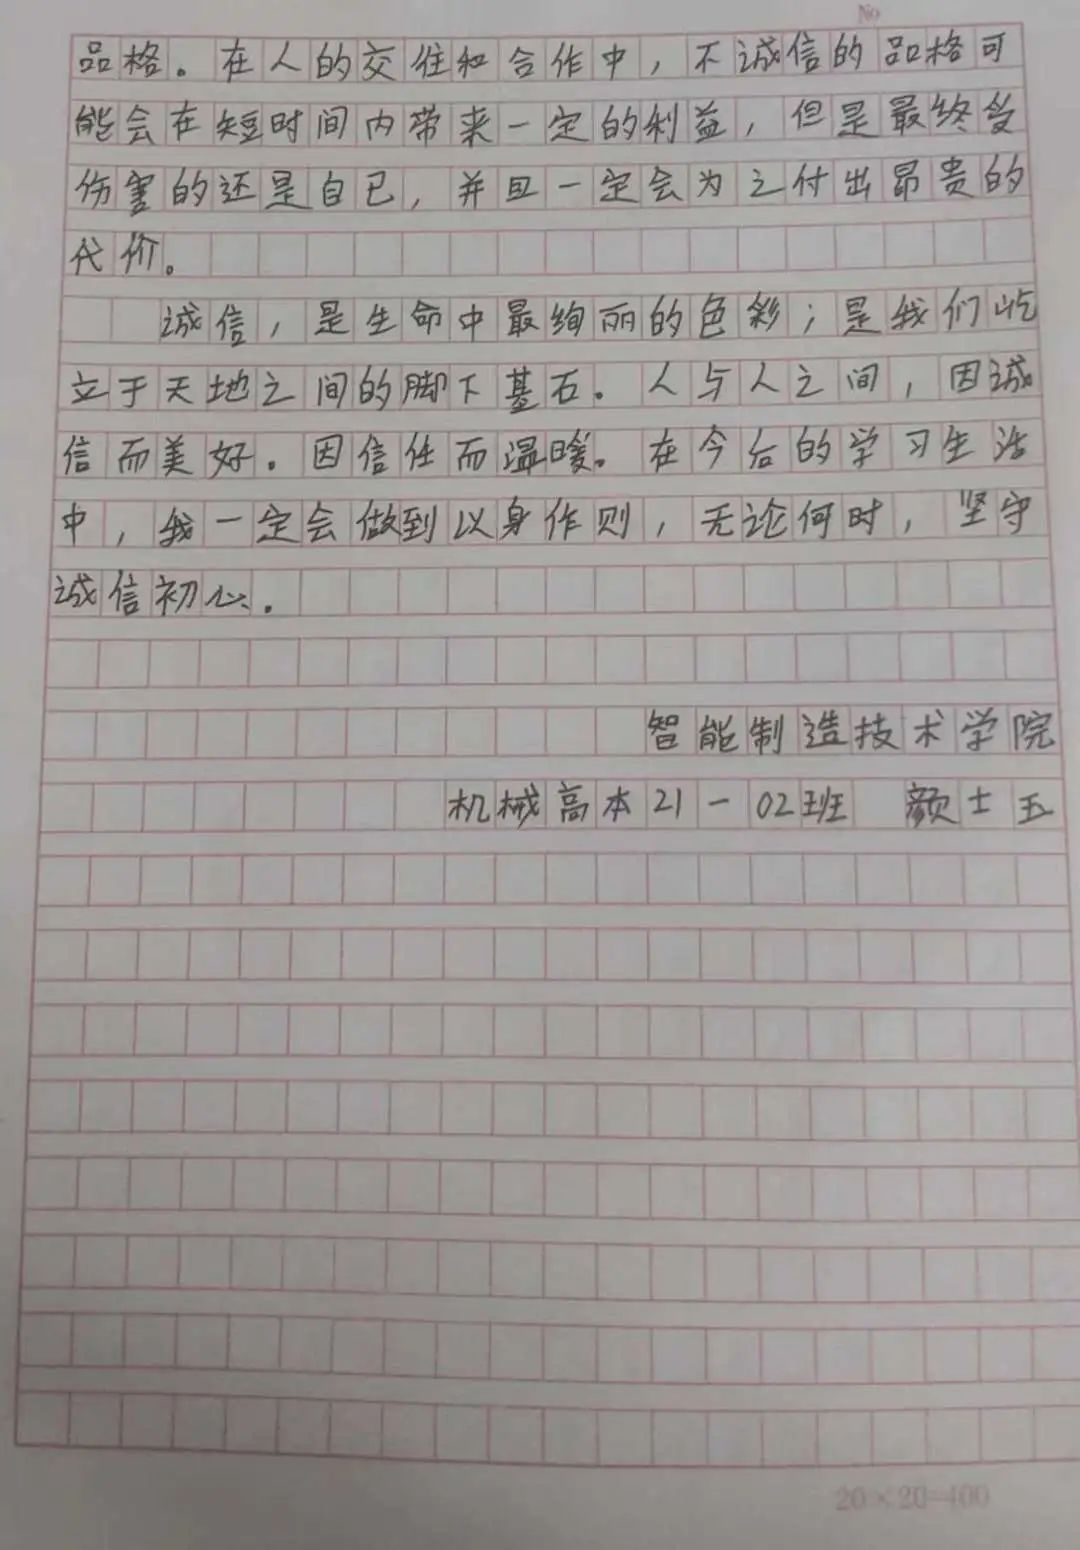 No
品格。在人的交往和合作中，不诚信的品格可
能会在短时间内带来一定的利益，但是最终受
伤害的还是自己，并且一定会为之付出昂贵的
代价。
诚信，是生命中最绚丽的色彩；是我们屹
立于天地之间的脚下基石。人与人之间，因诚
信而美好。因信任而温暖。在今后的学习生活
中，我一定会做到以身作则，无论何时，坚守
诚信初心。
智能制造技术学院
机械高本21-02班 颜士五
20×20=400